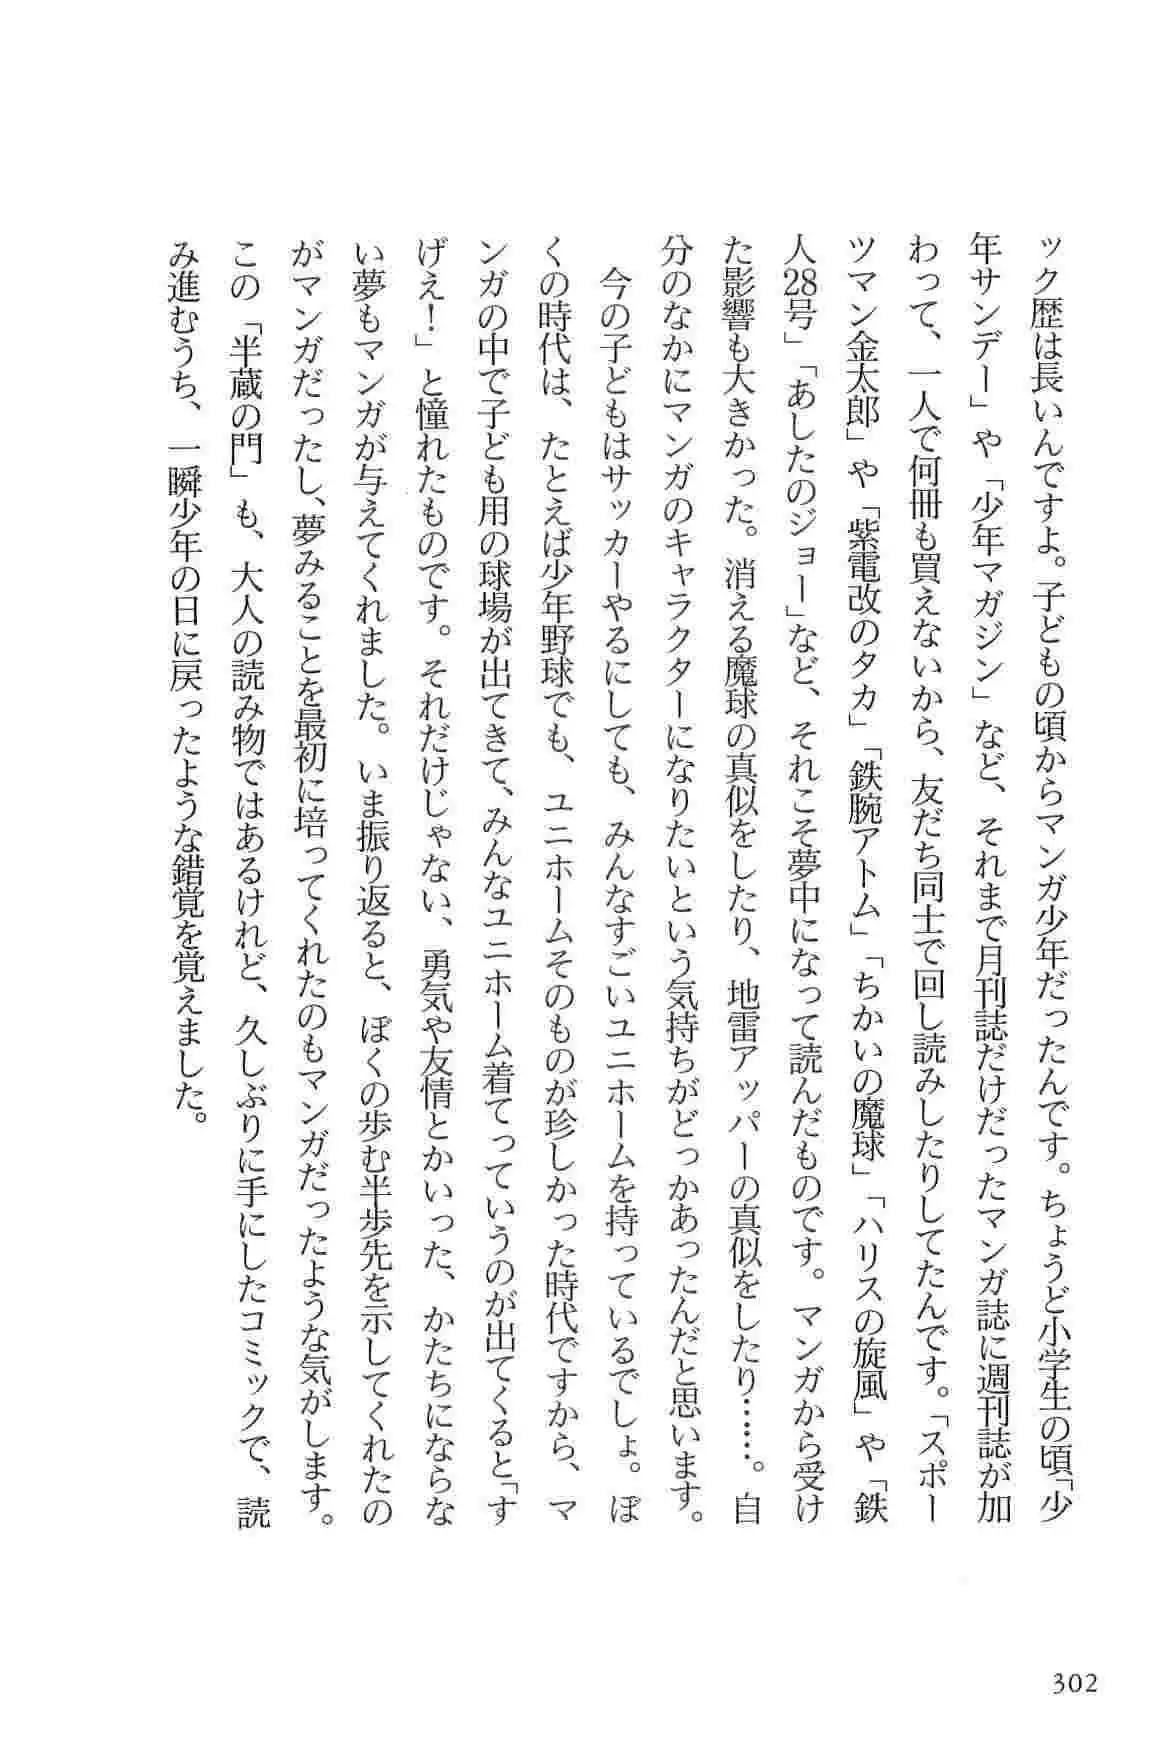 ック歴は長いんですよ。子どもの頃からマンガ少年だったんです。ちょうど小学生の頃「少
年サンデー」や「少年マガジン」など、それまで月刊誌だけだったマンガ誌に週刊誌が加
わって、一人で何冊も買えないから、友だち同士で回し読みしたりしてたんです。「スポー
ツマン金太郎」や「紫電改のタカ」「鉄腕アトム」「ちかいの魔球」「ハリスの旋風」や「鉄
人28号」「あしたのジョー」など、それこそ夢中になって読んだものです。マンガから受け
た影響も大きかった。消える魔球の真似をしたり、地雷アッパーの真似をしたり……。自
分のなかにマンガのキャラクターになりたいという気持ちがどっかあったんだと思います。
今の子どもはサッカーやるにしても、みんなすごいユニホームを持っているでしょ。ぼ
くの時代は、たとえば少年野球でも、ユニホームそのものが珍しかった時代ですから、マ
ンガの中で子ども用の球場が出てきて、みんなユニホーム着てっていうのが出てくると「す
げえ！」と憧れたものです。それだけじゃない、勇気や友情とかいった、かたちにならな
い夢もマンガが与えてくれました。いま振り返ると、ぼくの歩む半歩先を示してくれたの
がマンガだったし、夢みることを最初に培ってくれたのもマンガだったような気がします。
この「半蔵の門」も、大人の読み物ではあるけれど、久しぶりに手にしたコミックで、読
み進むうち、一瞬少年の日に戻ったような錯覚を覚えました。
302